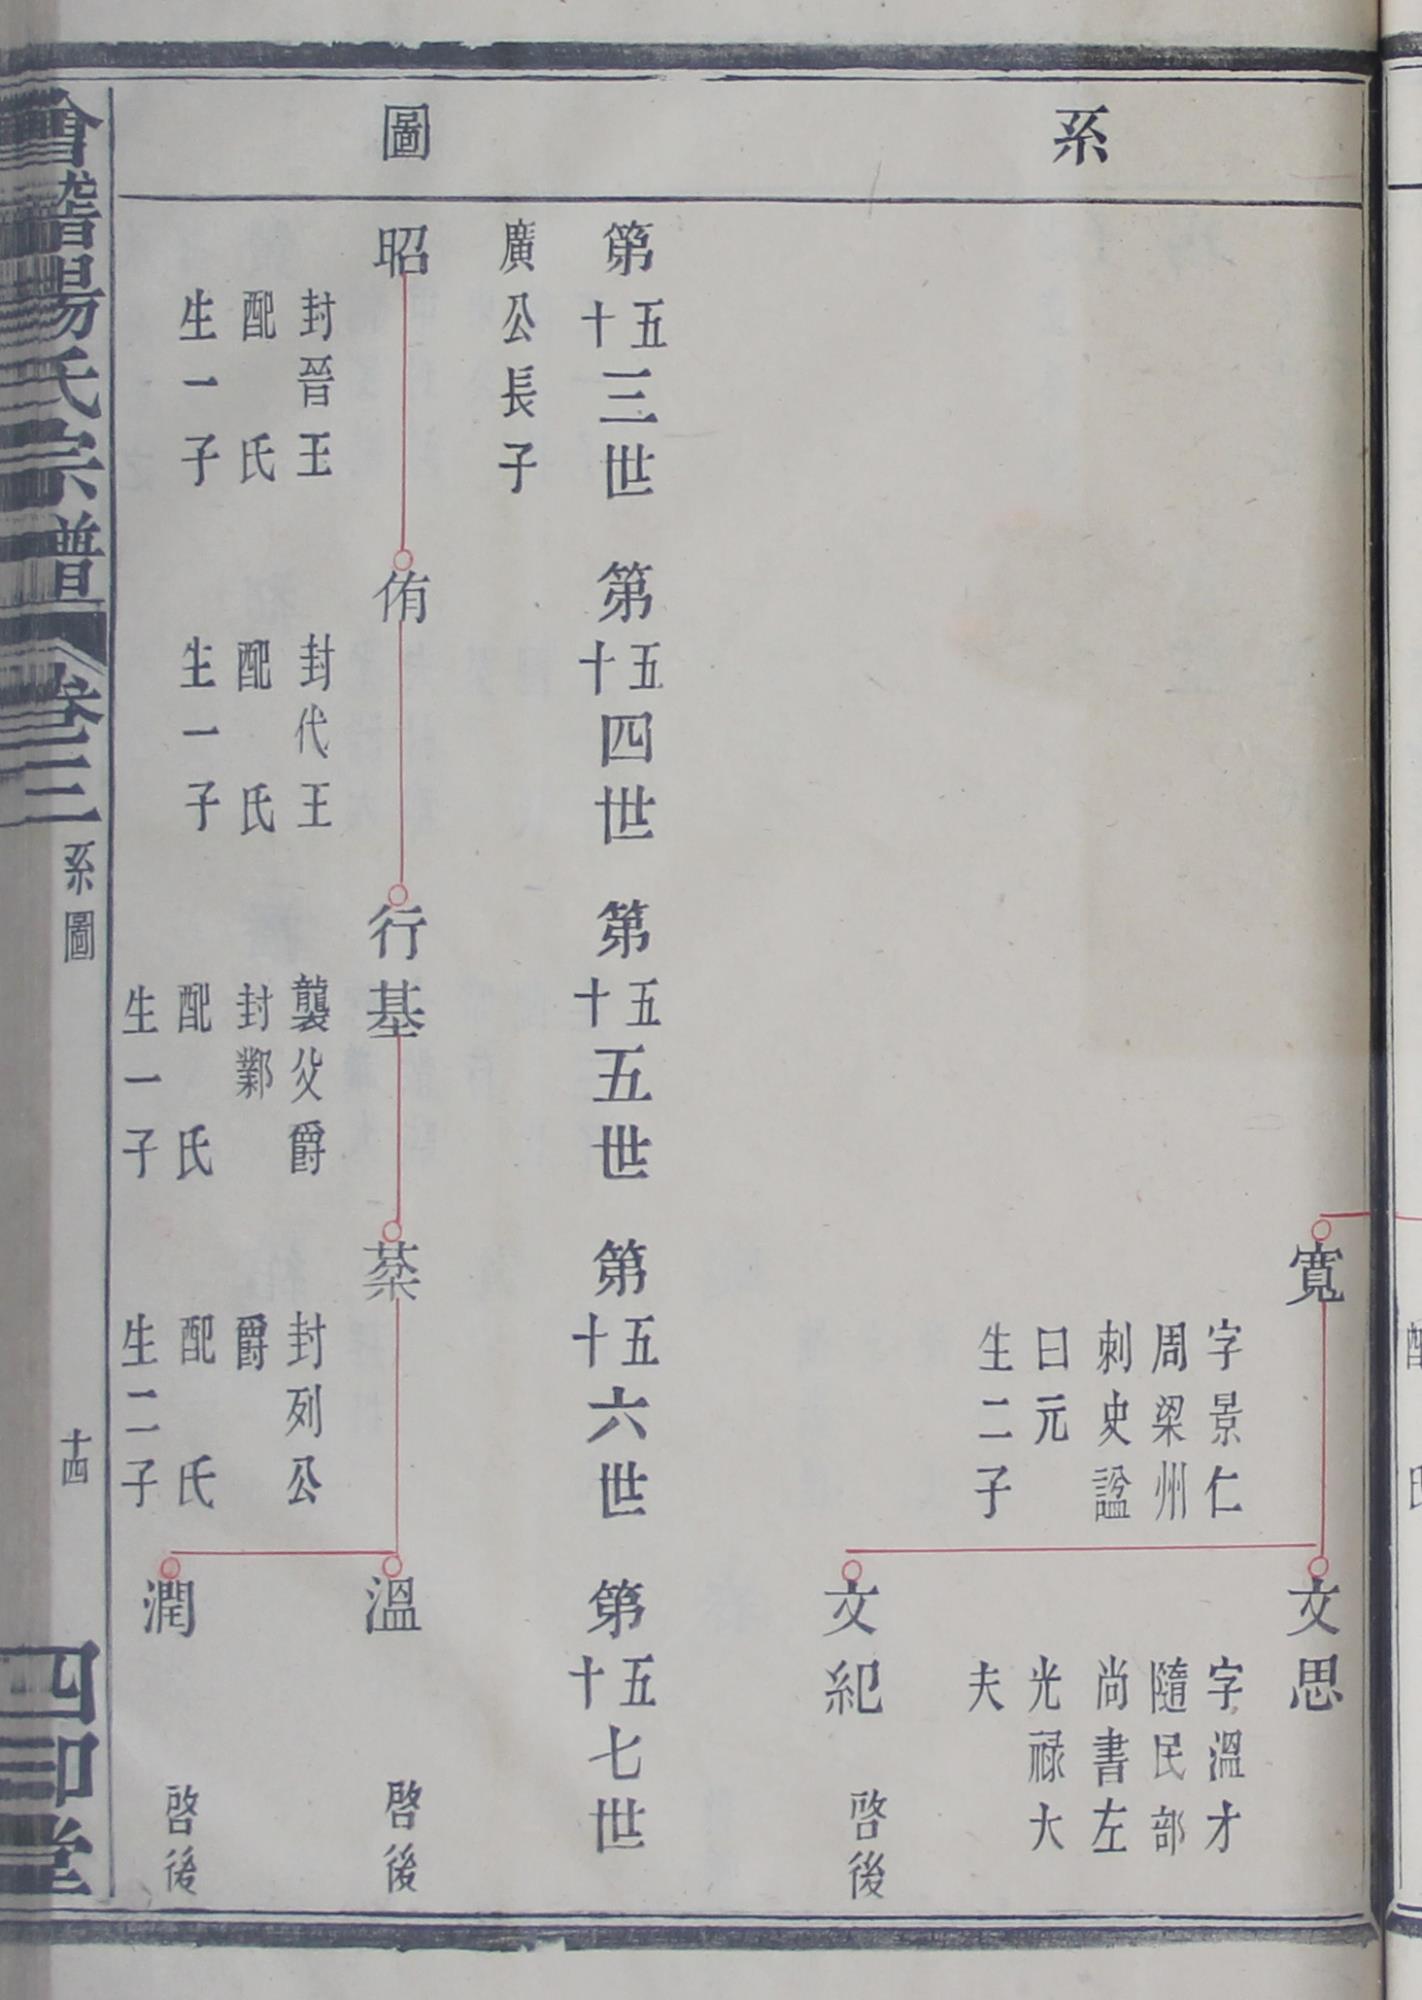 系圖
寬
字景仁
周梁州
刺史諡
曰元
生二子
文思
字溫才
隨民部
尚書左
光祿大
夫
文紀
啓後
第五十三世
第五十四世
第五十五世
第五十六世
第五十七世
廣公長子
昭
封晉王
配氏
生一子
侑
封代王
配氏
生一子
行基
襲父爵
封酅
配氏
生一子
棻
封列公
爵
配氏
生二子
溫
啓後
潤
啓後
會稽楊氏宗譜
卷三
系圖
十四
四知堂